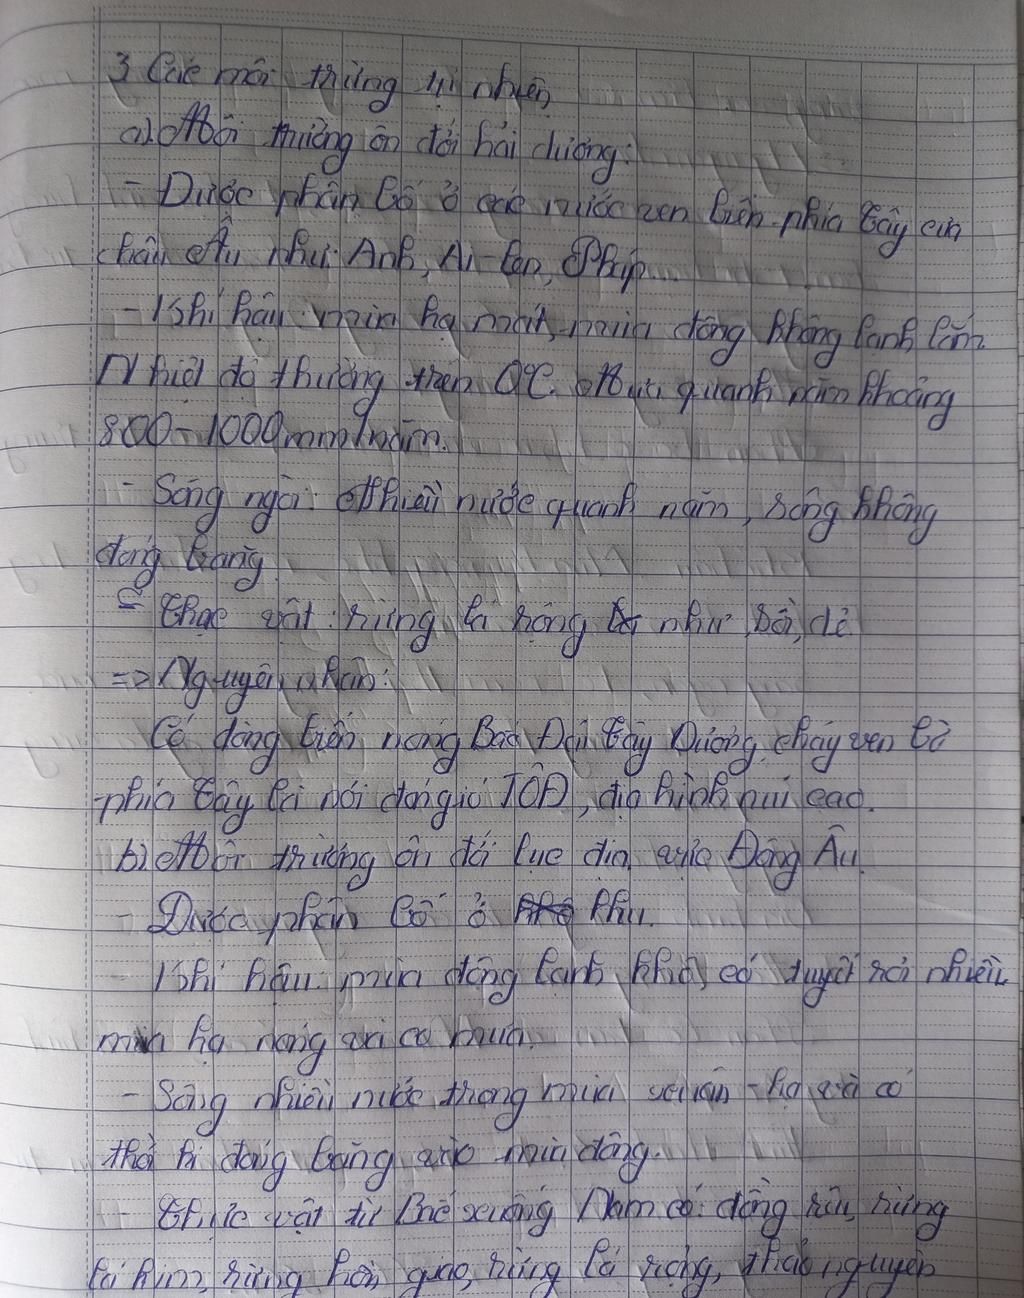 3 Các môi trường tự nhiên
a) Môi trường ôn đới hải dương:
- Được phân bố ở các nước ven biển phía Tây của
châu Âu như: Anh, Ai-len, Pháp...
- Khí hậu: mùa hạ mát, mùa đông không lạnh lắm.
Nhiệt độ thường trên 0°C. Mưa quanh năm khoảng
800-1000mm/năm.
- Sông ngòi: Nhiều nước quanh năm, sông không
đóng băng
- Thực vật: rừng lá rộng như sồi, dẻ
=> Nguyên nhân:
Có dòng biển nóng Bắc Đại Tây Dương chảy ven bờ
phía Tây đón gió TÔĐ, địa hình núi cao.
b) Môi trường ôn đới lục địa Đông Âu.
- Được phân bố ở khu.
- Khí hậu mùa đông lạnh, khô, có tuyết rơi nhiều
mùa hạ nóng và có mưa.
- Sông nhiều nước trong mùa xuân - hạ và có
thể bị đóng băng vào mùa đông.
- Thực vật từ Bắc xuống Nam có: đồng rêu, rừng
lá kim, rừng hỗn giao, rừng lá rộng, thảo nguyên